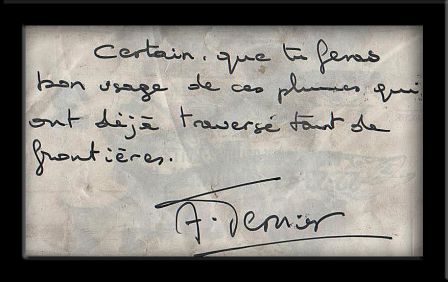 Certain, que tu feras
bon usage de ces plumes qui
ont déjà traversé tant de
frontières.
A. Dernier